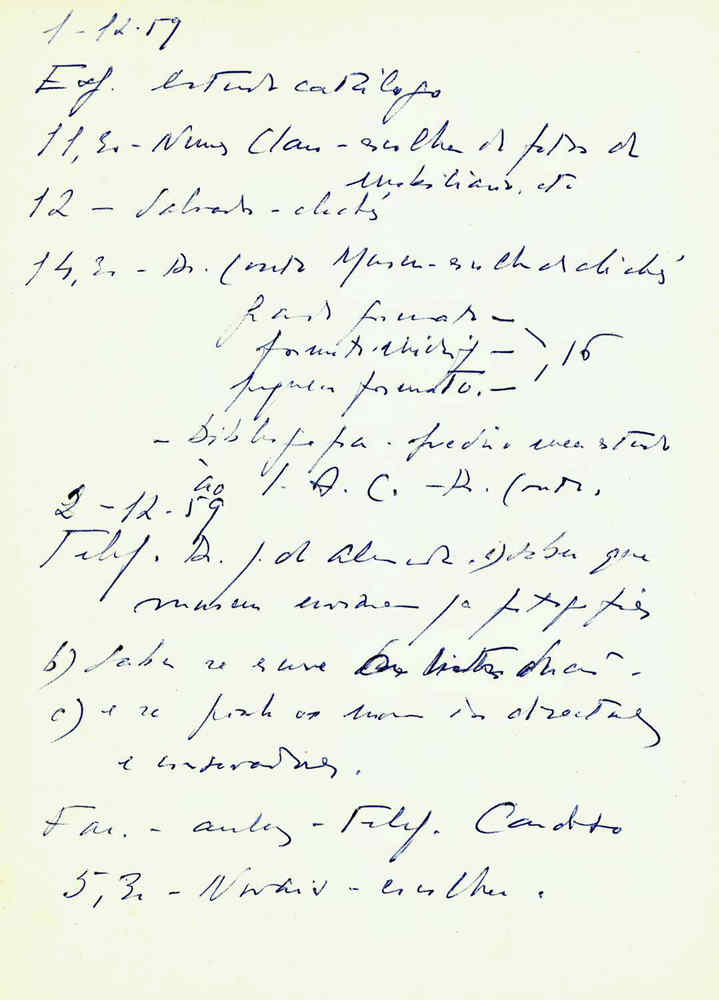 1-12-59
Exp. estudo catálogo
11,30 - Nunes Claro - escolha de fotos de
mobiliário, etc
12 - Salvador - clichés
14,30 - Dr. Couto Museu - escolha de clichés
grande formato -
formato médio -
, 16
pequeno formato. -
- Bibliografia - pedir o meu estudo
ao I. A. C. - Dr. Couto.
2-12-59
Telef. Dr. J. de Almeida. a) saber que
museus enviaram já fotografias
b) Saber se escreve introdução -
c) e se pede os nomes dos directores
e conservadores.
Fac. - aulas - Telef. Cardoso
5,30 - Novais - escolha.